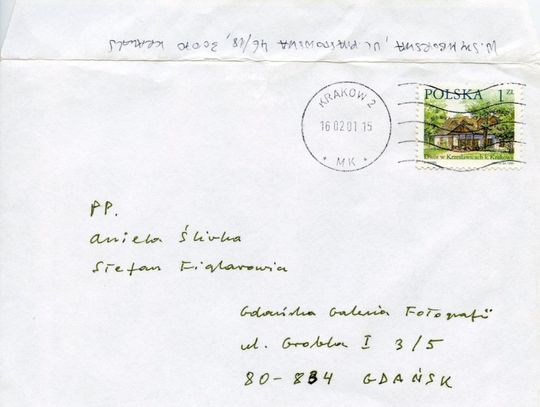 W. SZYMBORSKA, UL PIASTOWSKA 46/18, 30070 KRAKÓW
KRAKOW 2
16 02 01 15
* MK *
POLSKA 1 ZŁ
Dwór w Krzesławicach k. Krakowa
PP.
Aniela Śliwka
Stefan Figlarowicz
Gdańska Galeria Fotografii
ul. Grobla I 3/5
80-834 GDAŃSK